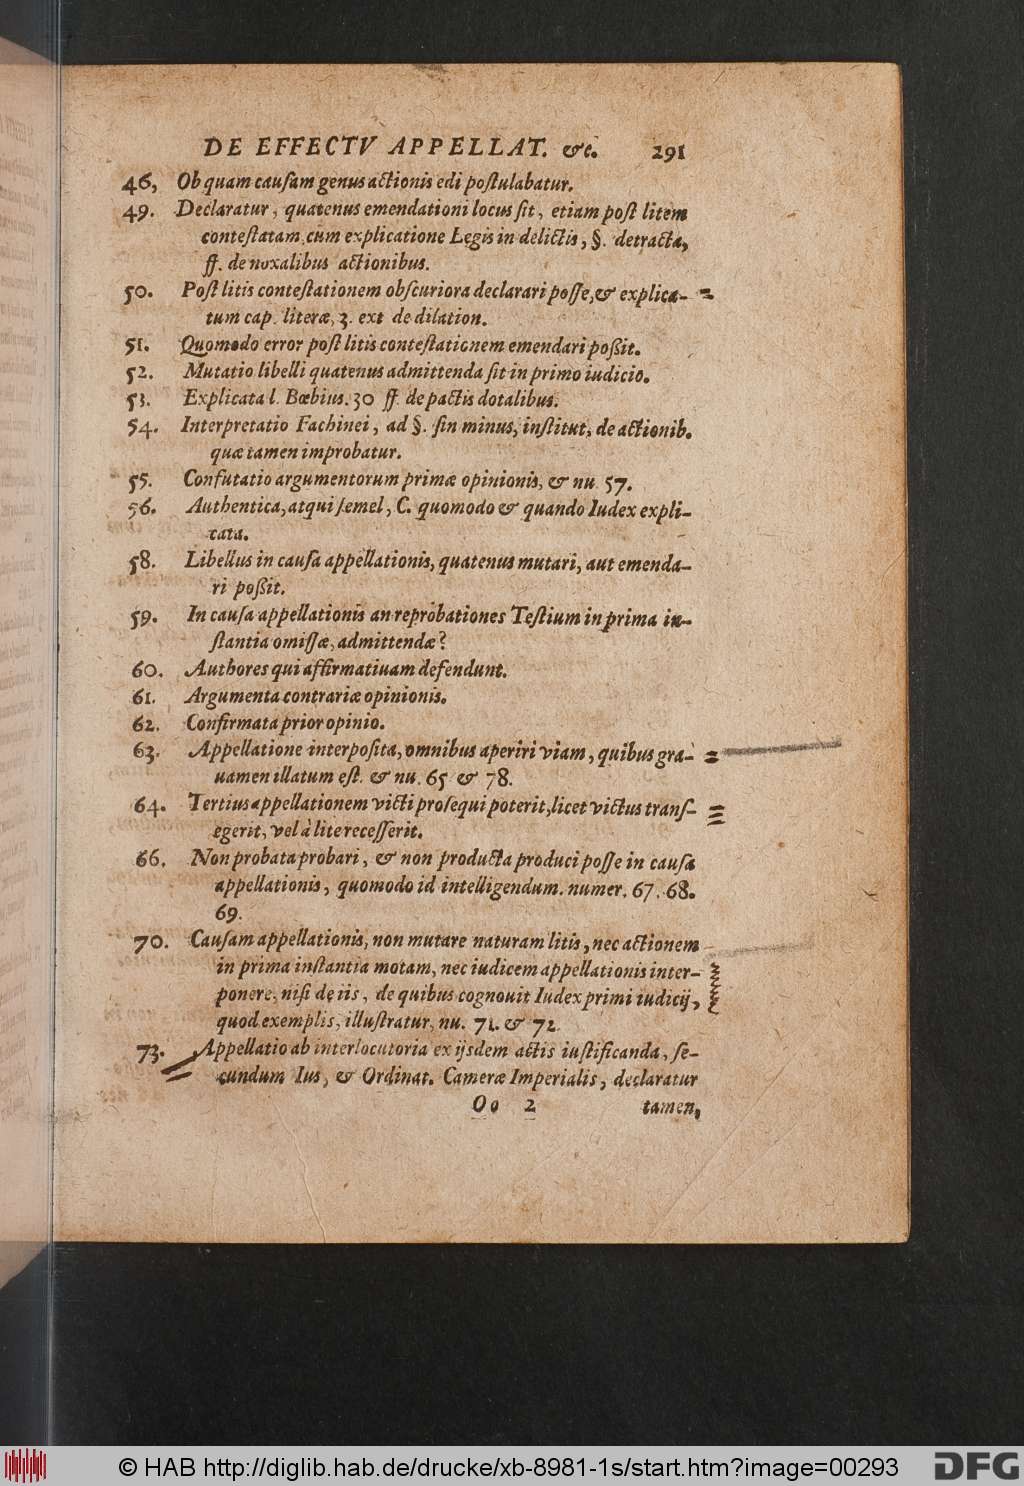 DE EFFECTV APPELLAT. &c. 291
46, Ob quam causam genus actionis edi postulabatur.
49. Declaratur, quatenus emendationi locus sit, etiam post litem
contestatam, cum explicatione Legis in delictis, §. detracta,
ff. de noxalibus actionibus.
50. Post litis contestationem obscuriora declarari posse, & explica-
tum cap. literæ, 3. ext de dilation.
51. Quomodo error post litis contestationem emendari poßit.
52. Mutatio libelli quatenus admittenda sit in primo iudicio.
53. Explicata l. Bœbius. 30 ff. de pactis dotalibus.
54. Interpretatio Fachinei, ad §. sin minus, institut, de actionib.
quæ tamen improbatur.
55. Confutatio argumentorum primæ opinionis, & nu. 57.
56. Authentica, atqui semel, C. quomodo & quando Iudex expli-
cata.
58. Libellus in causa appellationis, quatenus mutari, aut emenda-
ri poßit.
59. In causa appellationis an reprobationes Testium in prima in-
stantia omissæ, admittendæ?
60. Authores qui affirmatiuam defendunt.
61. Argumenta contrariæ opinionis.
62. Confirmata prior opinio.
63. Appellatione interposita, omnibus aperiri viam, quibus gra-
uamen illatum est. & nu. 65 & 78.
64. Tertius appellationem victi prosequi poterit, licet victus trans-
egerit, vel à lite recesserit.
66. Non probata probari, & non producta produci posse in causa
appellationis, quomodo id intelligendum. numer. 67. 68.
69.
70. Causam appellationis, non mutare naturam litis, nec actionem
in prima instantia motam, nec iudicem appellationis inter-
ponere, nisi de iis, de quibus cognouit Iudex primi iudicij,
quod exemplis, illustratur, nu. 71. & 72.
73. Appellatio ab interlocutoria ex ijsdem actis iustificanda, se-
cundum Ius, & Ordinat. Cameræ Imperialis, declaratur
Oo 2 tamen,
© HAB http://diglib.hab.de/drucke/xb-8981-1s/start.htm?image=00293
DFG